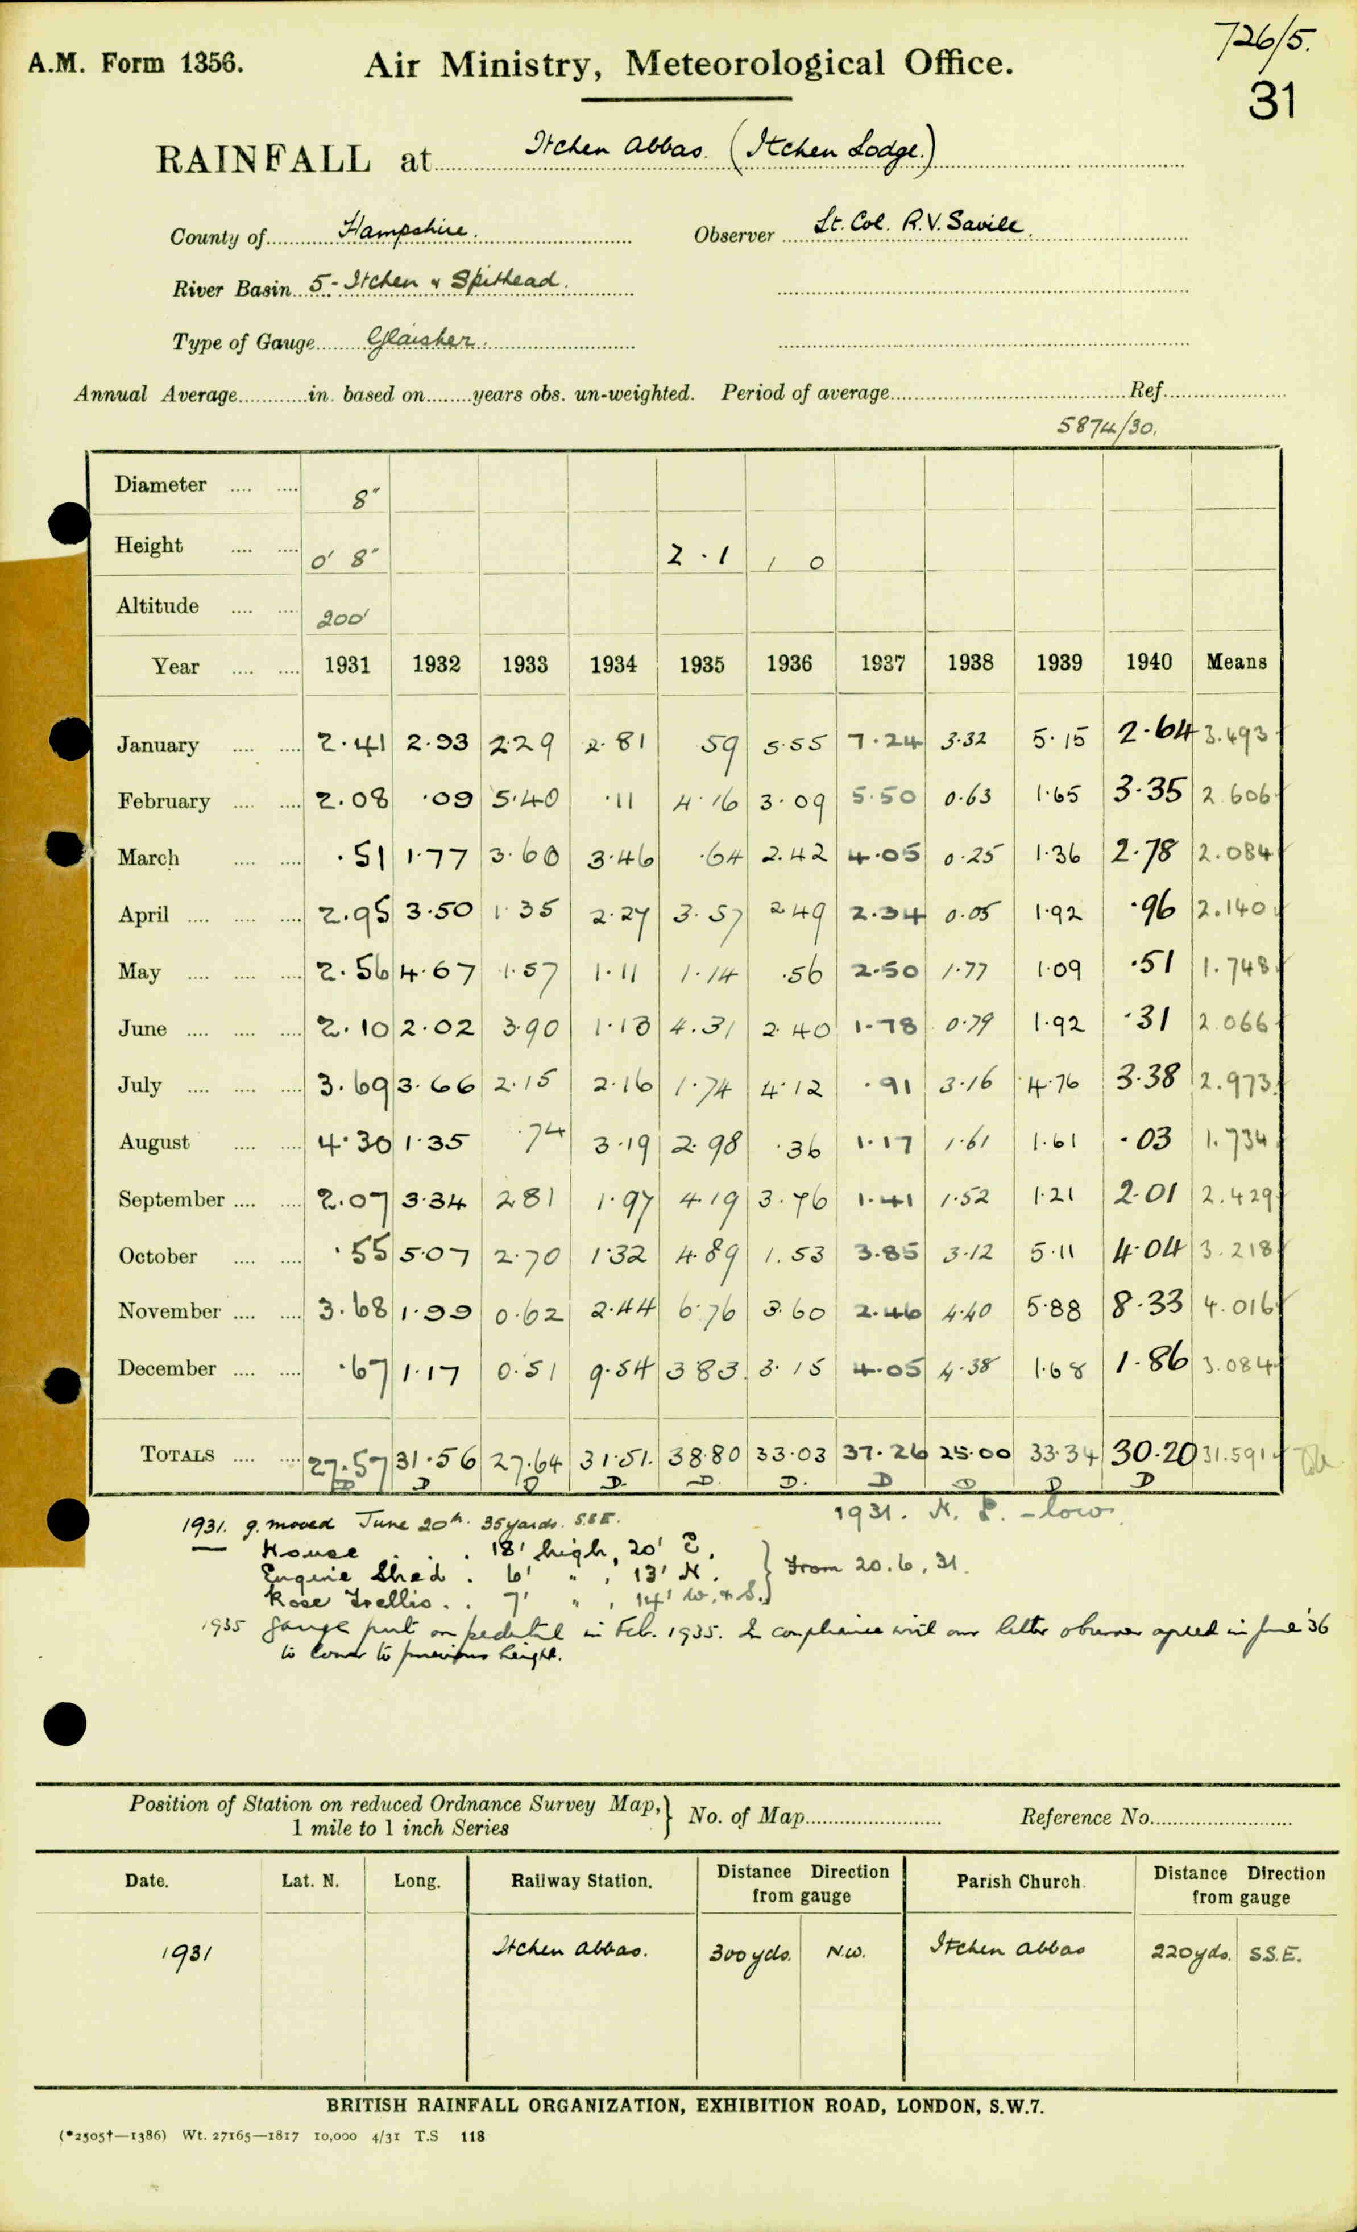 726/5.
A.M. Form 1356.
Air Ministry, Meteorological Office.
31
RAINFALL at Itchen Abbas. (Itchen Lodge.)
County of Hampshire. Observer Lt. Col. R.V. Savile
River Basin 5 - Itchen & Spithead.
Type of Gauge Glaisher.
Annual Average............in. based on........years obs. un-weighted. Period of average.......... Ref..........
5874/30.
Diameter .... .... 8"
Height .... .... 0' 8" 2 . 1 1 0
Altitude .... .... 200'
Year .... .... 1931 1932 1933 1934 1935 1936 1937 1938 1939 1940 Means
January .... .... 2.41 2.93 2.29 2.81 59 5.55 7.24 3.32 5.15 2.64 3.493
February .... .... 2.08 .09 5.40 .11 4.16 3.09 5.50 0.63 1.65 3.35 2.606
March .... .... .51 1.77 3.60 3.46 .64 2.42 4.05 0.25 1.36 2.78 2.084
April .... .... .... 2.95 3.50 1.35 2.27 3.57 2.49 2.34 0.05 1.92 .96 2.140
May .... .... .... 2.56 4.67 1.57 1.11 1.14 .56 2.50 1.77 1.09 .51 1.748
June .... .... .... 2.10 2.02 3.90 1.13 4.31 2.40 1.78 0.79 1.92 .31 2.066
July .... .... .... 3.69 3.66 2.15 2.16 1.74 4.12 .91 3.16 4.76 3.38 2.973
August .... .... 4.30 1.35 .74 3.19 2.98 .36 1.17 1.61 1.61 .03 1.734
September .... .... 2.07 3.34 2.81 1.97 4.19 3.76 1.41 1.52 1.21 2.01 2.429
October .... .... .55 5.07 2.70 1.32 4.89 1.53 3.85 3.12 5.11 4.04 3.218
November .... .... 3.68 1.99 0.62 2.44 6.76 3.60 2.46 4.40 5.88 8.33 4.016
December .... .... .67 1.17 0.51 9.54 3 83. 3.15 4.05 4.38 1.68 1.86 3.084
TOTALS .... .... 27.57 31.56 27.64 31.51. 38.80 33.03 37.26 25.00 33.34 30.20 31.591
D D D D D. D D D D
1931. N. P. - low
1931. g. moved June 20th. 35 yards. S.S.E.
House . . . 18' high, 20' E.
Engine Shed . 6' " , 13' N. } From 20.6.31.
Rose Trellis . . 7' " , 14' W. & S.
1935 Gauge put on pedestal in Feb. 1935. In compliance with our letter observer agreed in June '36
to lower to previous height.
Position of Station on reduced Ordnance Survey Map, } No. of Map.......... Reference No..........
1 mile to 1 inch Series
Date. Lat. N. Long. Railway Station. Distance Direction from gauge Parish Church. Distance Direction from gauge
1931 Itchen Abbas. 300 yds. N.W. Itchen Abbas 220 yds. S.S.E.
BRITISH RAINFALL ORGANIZATION, EXHIBITION ROAD, LONDON, S.W.7.
(*2505†—1386) Wt. 27165—1817 10,000 4/31 T.S 118